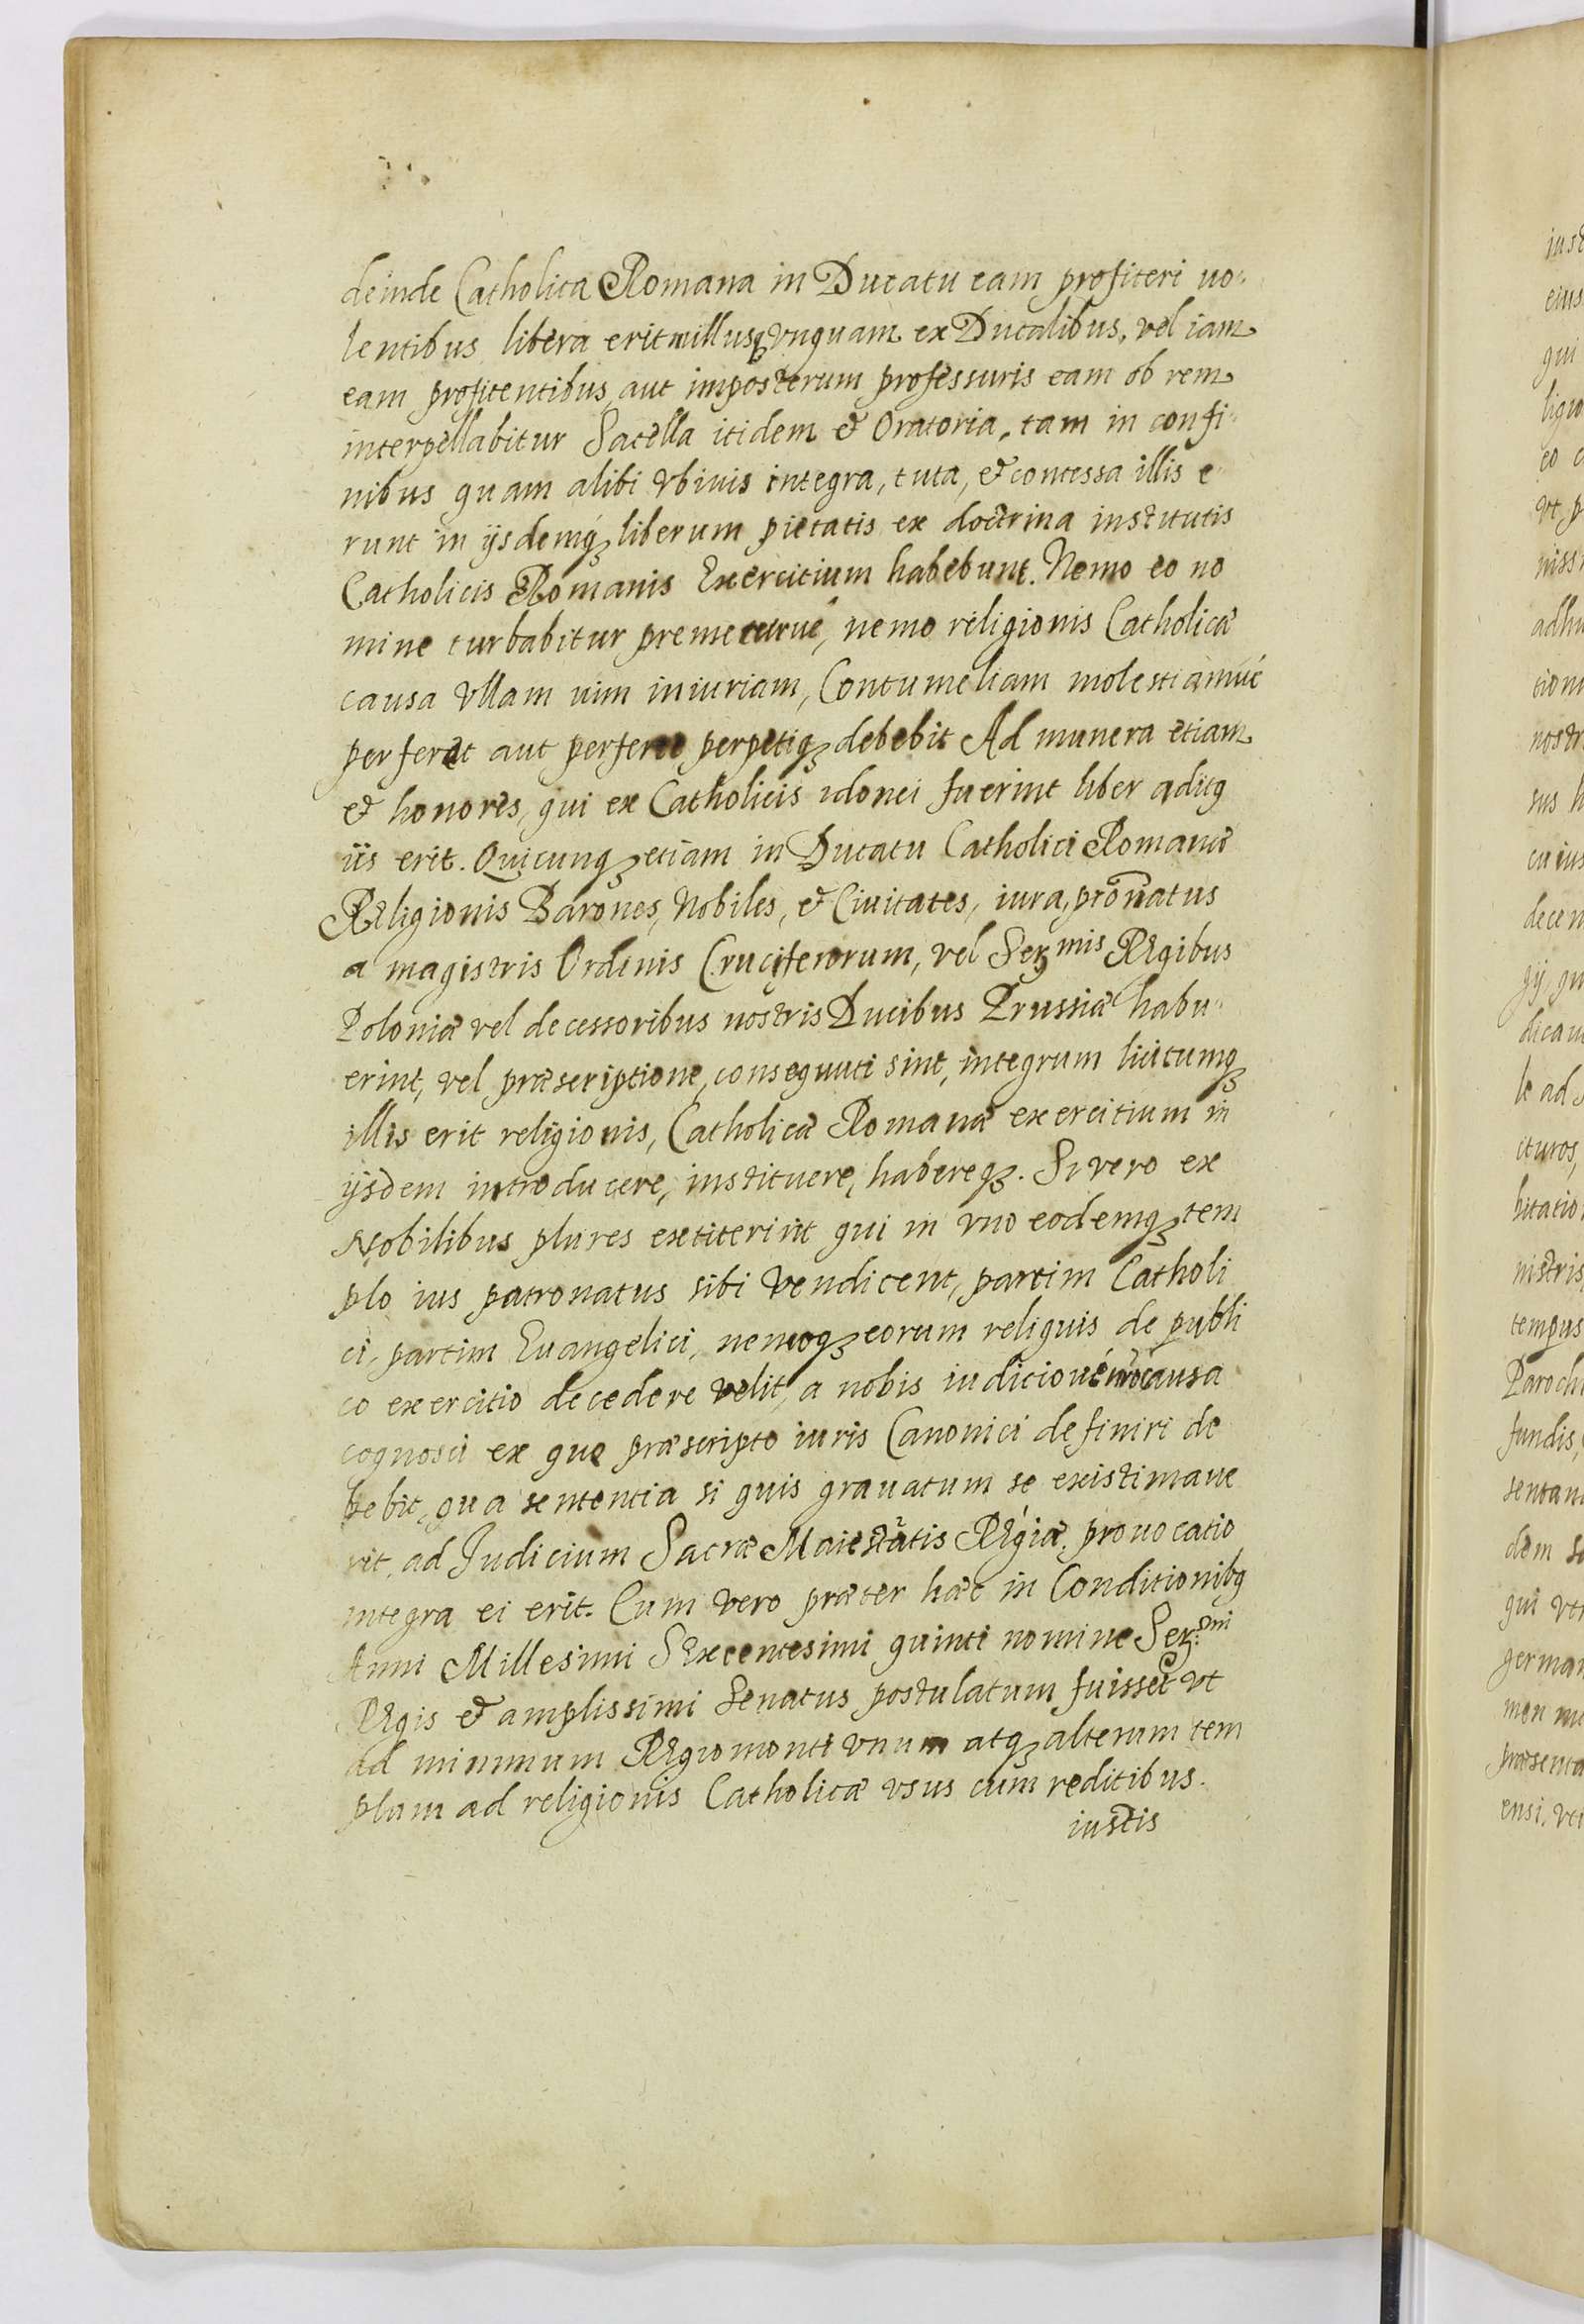 deinde Catholica Romana in Ducatu eam profiteri uo-
lentibus libera erit nullusq₃ vnquam ex Ducalibus, vel iam
eam profitentibus aut imposterum professuris eam ob rem
interpellabitur Sacella itidem & Oratoria, tam in confi-
nibus quam alibi vbiuis integra, tuta, & concessa illis e-
runt in ijsdemq₃ liberum pietatis ex doctrina institutis
Catholicis Romanis Exercitium habebunt. Nemo eo no
mine turbabitur premeturué, nemo religionis Catholicæ
causa vllam uim iniuriam, Contumeliam molestiamué
perferet aut perferre perpetiq₃ debebit Ad munera etiam
& honores, qui ex Catholicis idonei fuerint liber aditꝯ
iis erit. Quicunq₃ etiam in Ducatu Catholici Romanæ
Religionis Barones, Nobiles, & Ciuitates, iura, pronatus
a magistris Ordinis Cruciferorum, vel Ser^mis Regibus
Poloniæ vel decessoribus nostris Ducibus Prussiæ habu-
erint, vel præscriptione, consequuti sint, integrum licitumq₃
illis erit religionis, Catholicæ Romanæ exercitium in
ijsdem introducere, instituere, habereq₃. Si vero ex
Nobilibus plures extiterint qui in vno eodemq₃ tem
plo ius patronatus sibi vendicent, partim Catholi
ci, partim Euangelici, nemoq₃ eorum reliquis de publi
co exercitio decedere velit, a nobis iudicioué nrō causa
cognosci ex quo præscripto iuris Canonici definiri de
bebit, qua sententia si quis grauatum se existimaue
rit, ad Judicium Sacræ Maiestatis Regiæ, prouocatio
integra ei erit. Cum vero præter hæc in Conditionibꝯ
Anni Millesimi Sexcentesimi quinti nomine Ser.^mi
Regis & amplissimi Senatus postulatum fuisset vt
ad minimum Regiomonti vnum atq₃ alterum tem
plum ad religionis Catholicæ vsus cum reditibus.
iustis